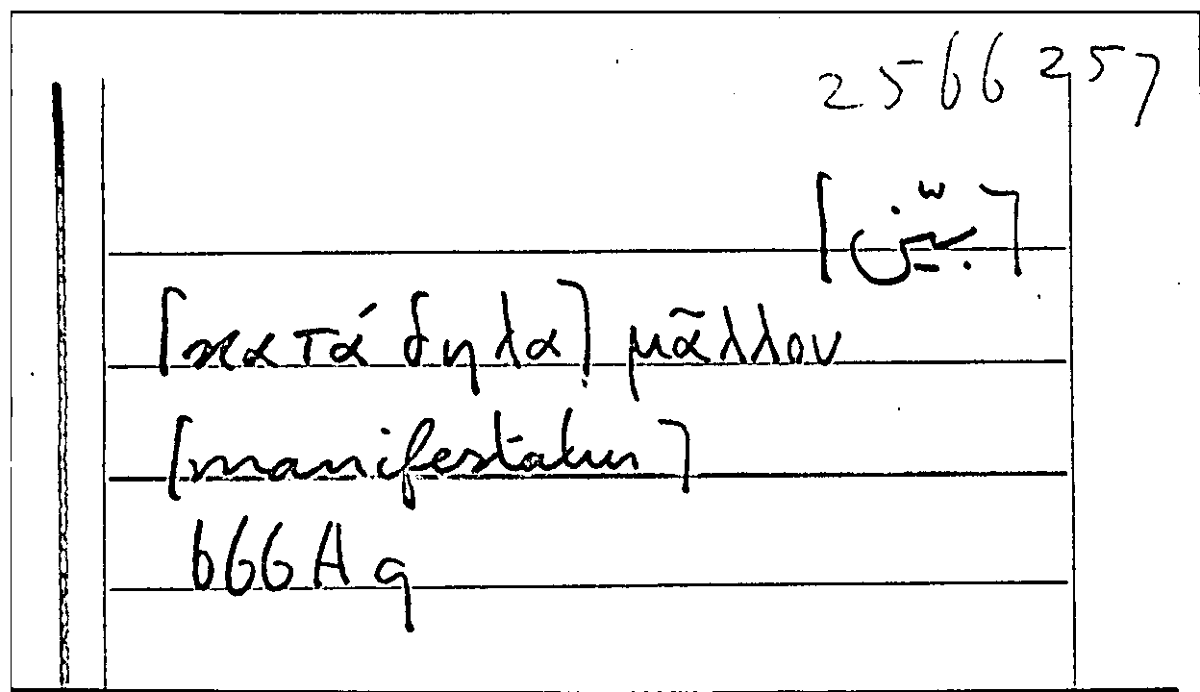 2566 257
[بيّن]
[κατάδηλα] μᾶλλον
[manifestatur]
666 A 9